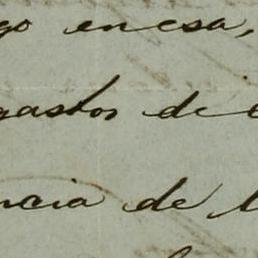 go en esa,
gastos de
ncia de